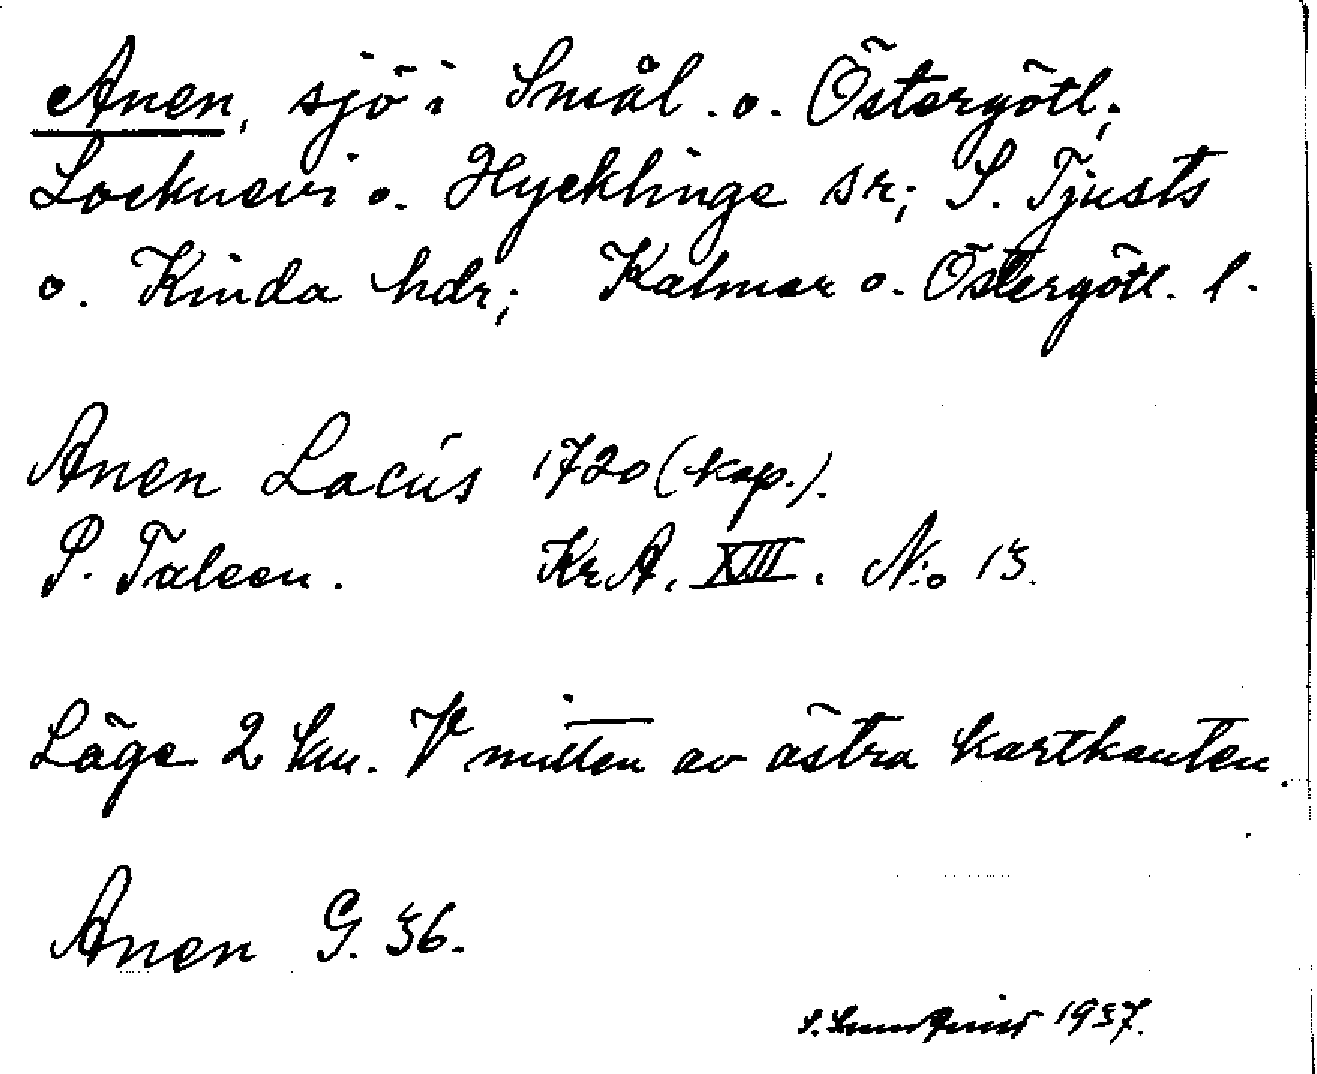 Anen, sjö i Smål. o. Östergötl;
Locknevi o. Hycklinge sr; S. Tjusts
o. Kinda hdr; Kalmar o. Östergötl. l.
Anen Lacus 1720 (kop.).
P. Taleen. Kr.A. XIII. N:o 13.
Läge 2 km. V mitten av östra kartkanten.
Anen G. 36.
1937.